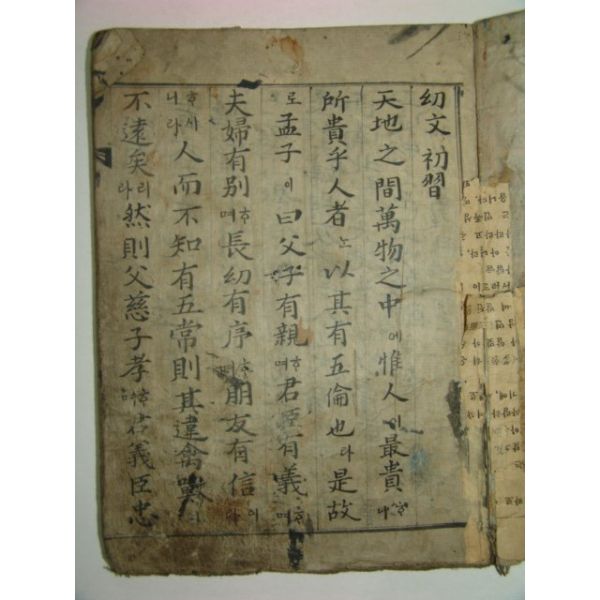 幼文 初習
天地之間萬物之中에惟人이最貴ᄒᆞ니
所貴乎人者노以其有五倫也라是故
로孟子이曰父子有親ᄒᆞ며君臣有義ᄒᆞ며
夫婦有別ᄒᆞ며長幼有序ᄒᆞ며朋友有信이라
ᄒᆞ시니라人而不知有五常則其違禽獸
不遠矣리라然則父慈子孝君義臣忠